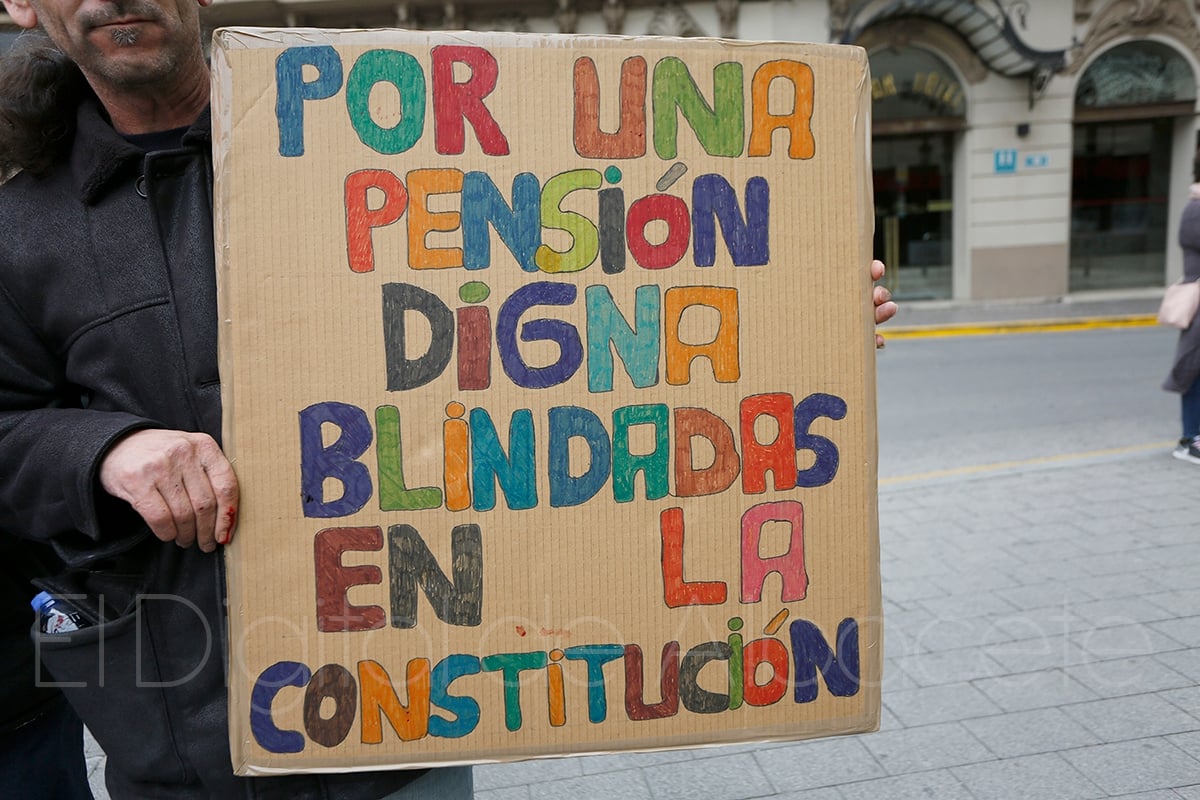 POR UNA
PENSIÓN
DIGNA
BLINDADAS
EN LA
CONSTITUCIÓN
El Digital de Albacete